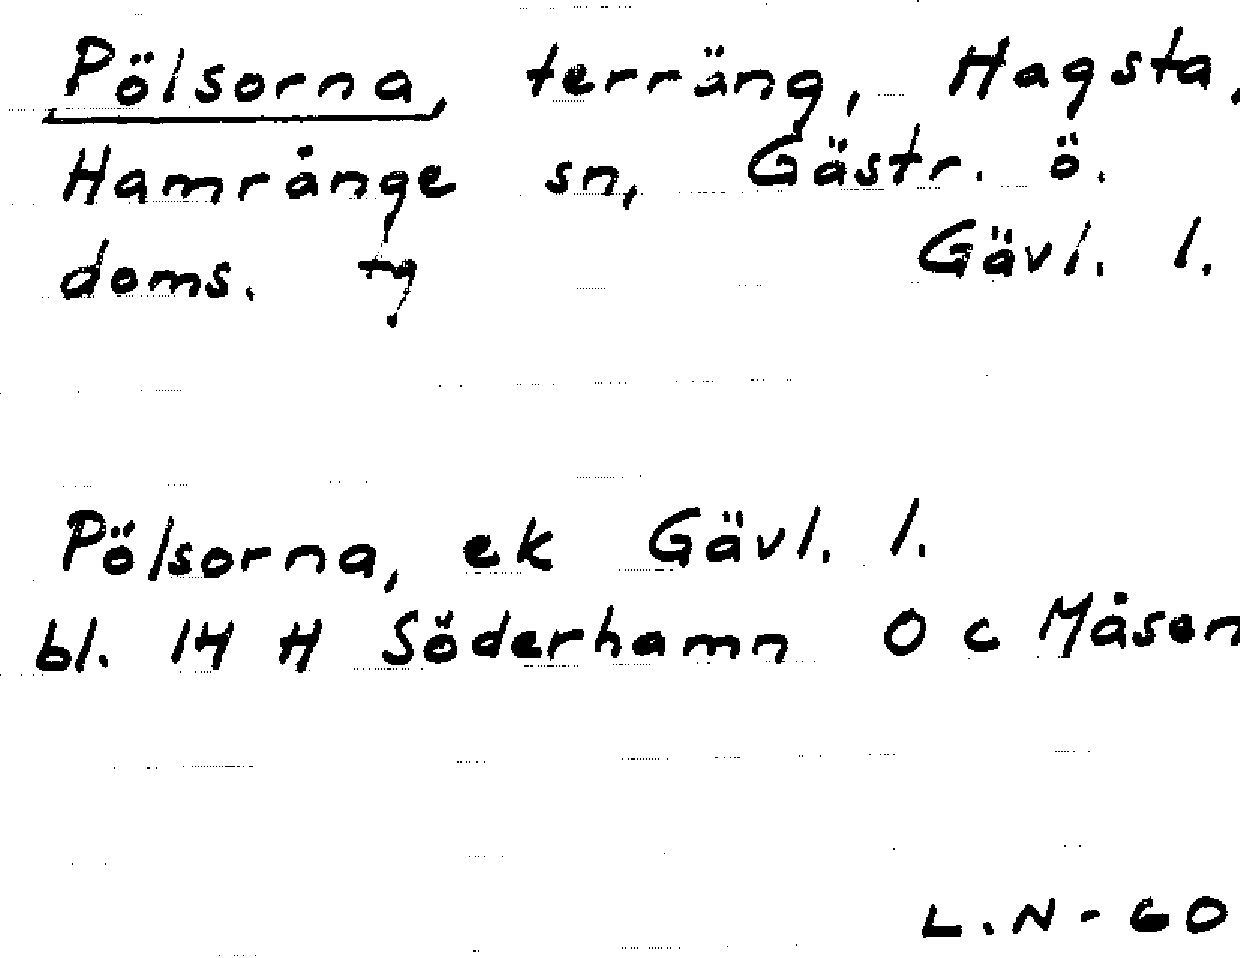 Pölsorna, terräng, Hagsta,
Hamrånge sn, Gästr. ö.
doms. tg Gävl. l.
Pölsorna, ek Gävl. l.
bl. 14 H Söderhamn 0 c Måsen
L.N-60